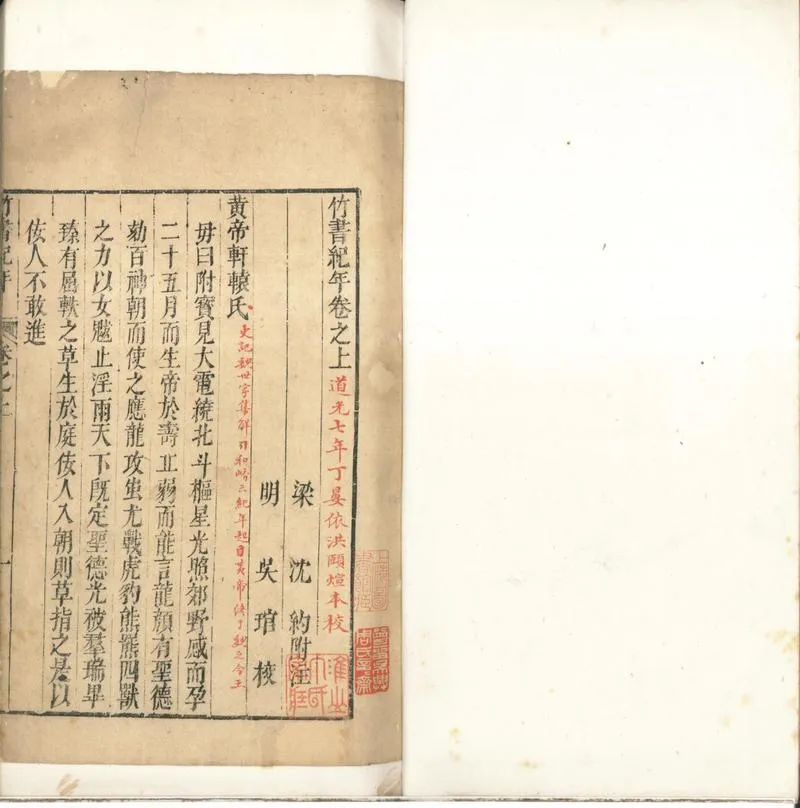 竹書紀年卷之上
道光七年丁晏依洪頤煊本校
梁 沈 約附注
明 吳 琯 校
黃帝軒轅氏
史記魏世家集解引和嶠云紀年起自黃帝終于魏之今王
毋曰附寶見大電繞北斗樞星光照郊野感而孕
二十五月而生帝於壽丘弱而能言龍顏有聖德
劾百神朝而使之應龍攻蚩尤戰虎豹熊羆四獸
之力以女魃止淫雨天下既定聖德光被羣瑞畢
臻有屈軼之草生於庭佞人入朝則草指之是以
佞人不敢進
竹書紀年 卷之上 一
上海圖書館藏